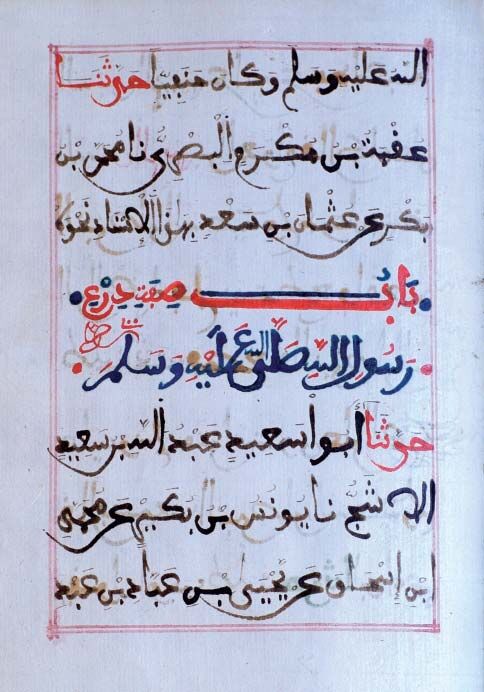 الله عليه وسلم وكان حنفيا حدثنا
عقبة بن مكرم البصري نا محمد بن
بكر عن عثمان بن سعد بهذا الاسناد نحوه
باب صفة درع
رسول الله صلى الله عليه وسلم
حدثنا أبوا سعيد عبد الله بن سعيد
الاشج نا يونس بن بكير عن محمد
ابن إسحاق عن يحيى بن عباد بن عبد